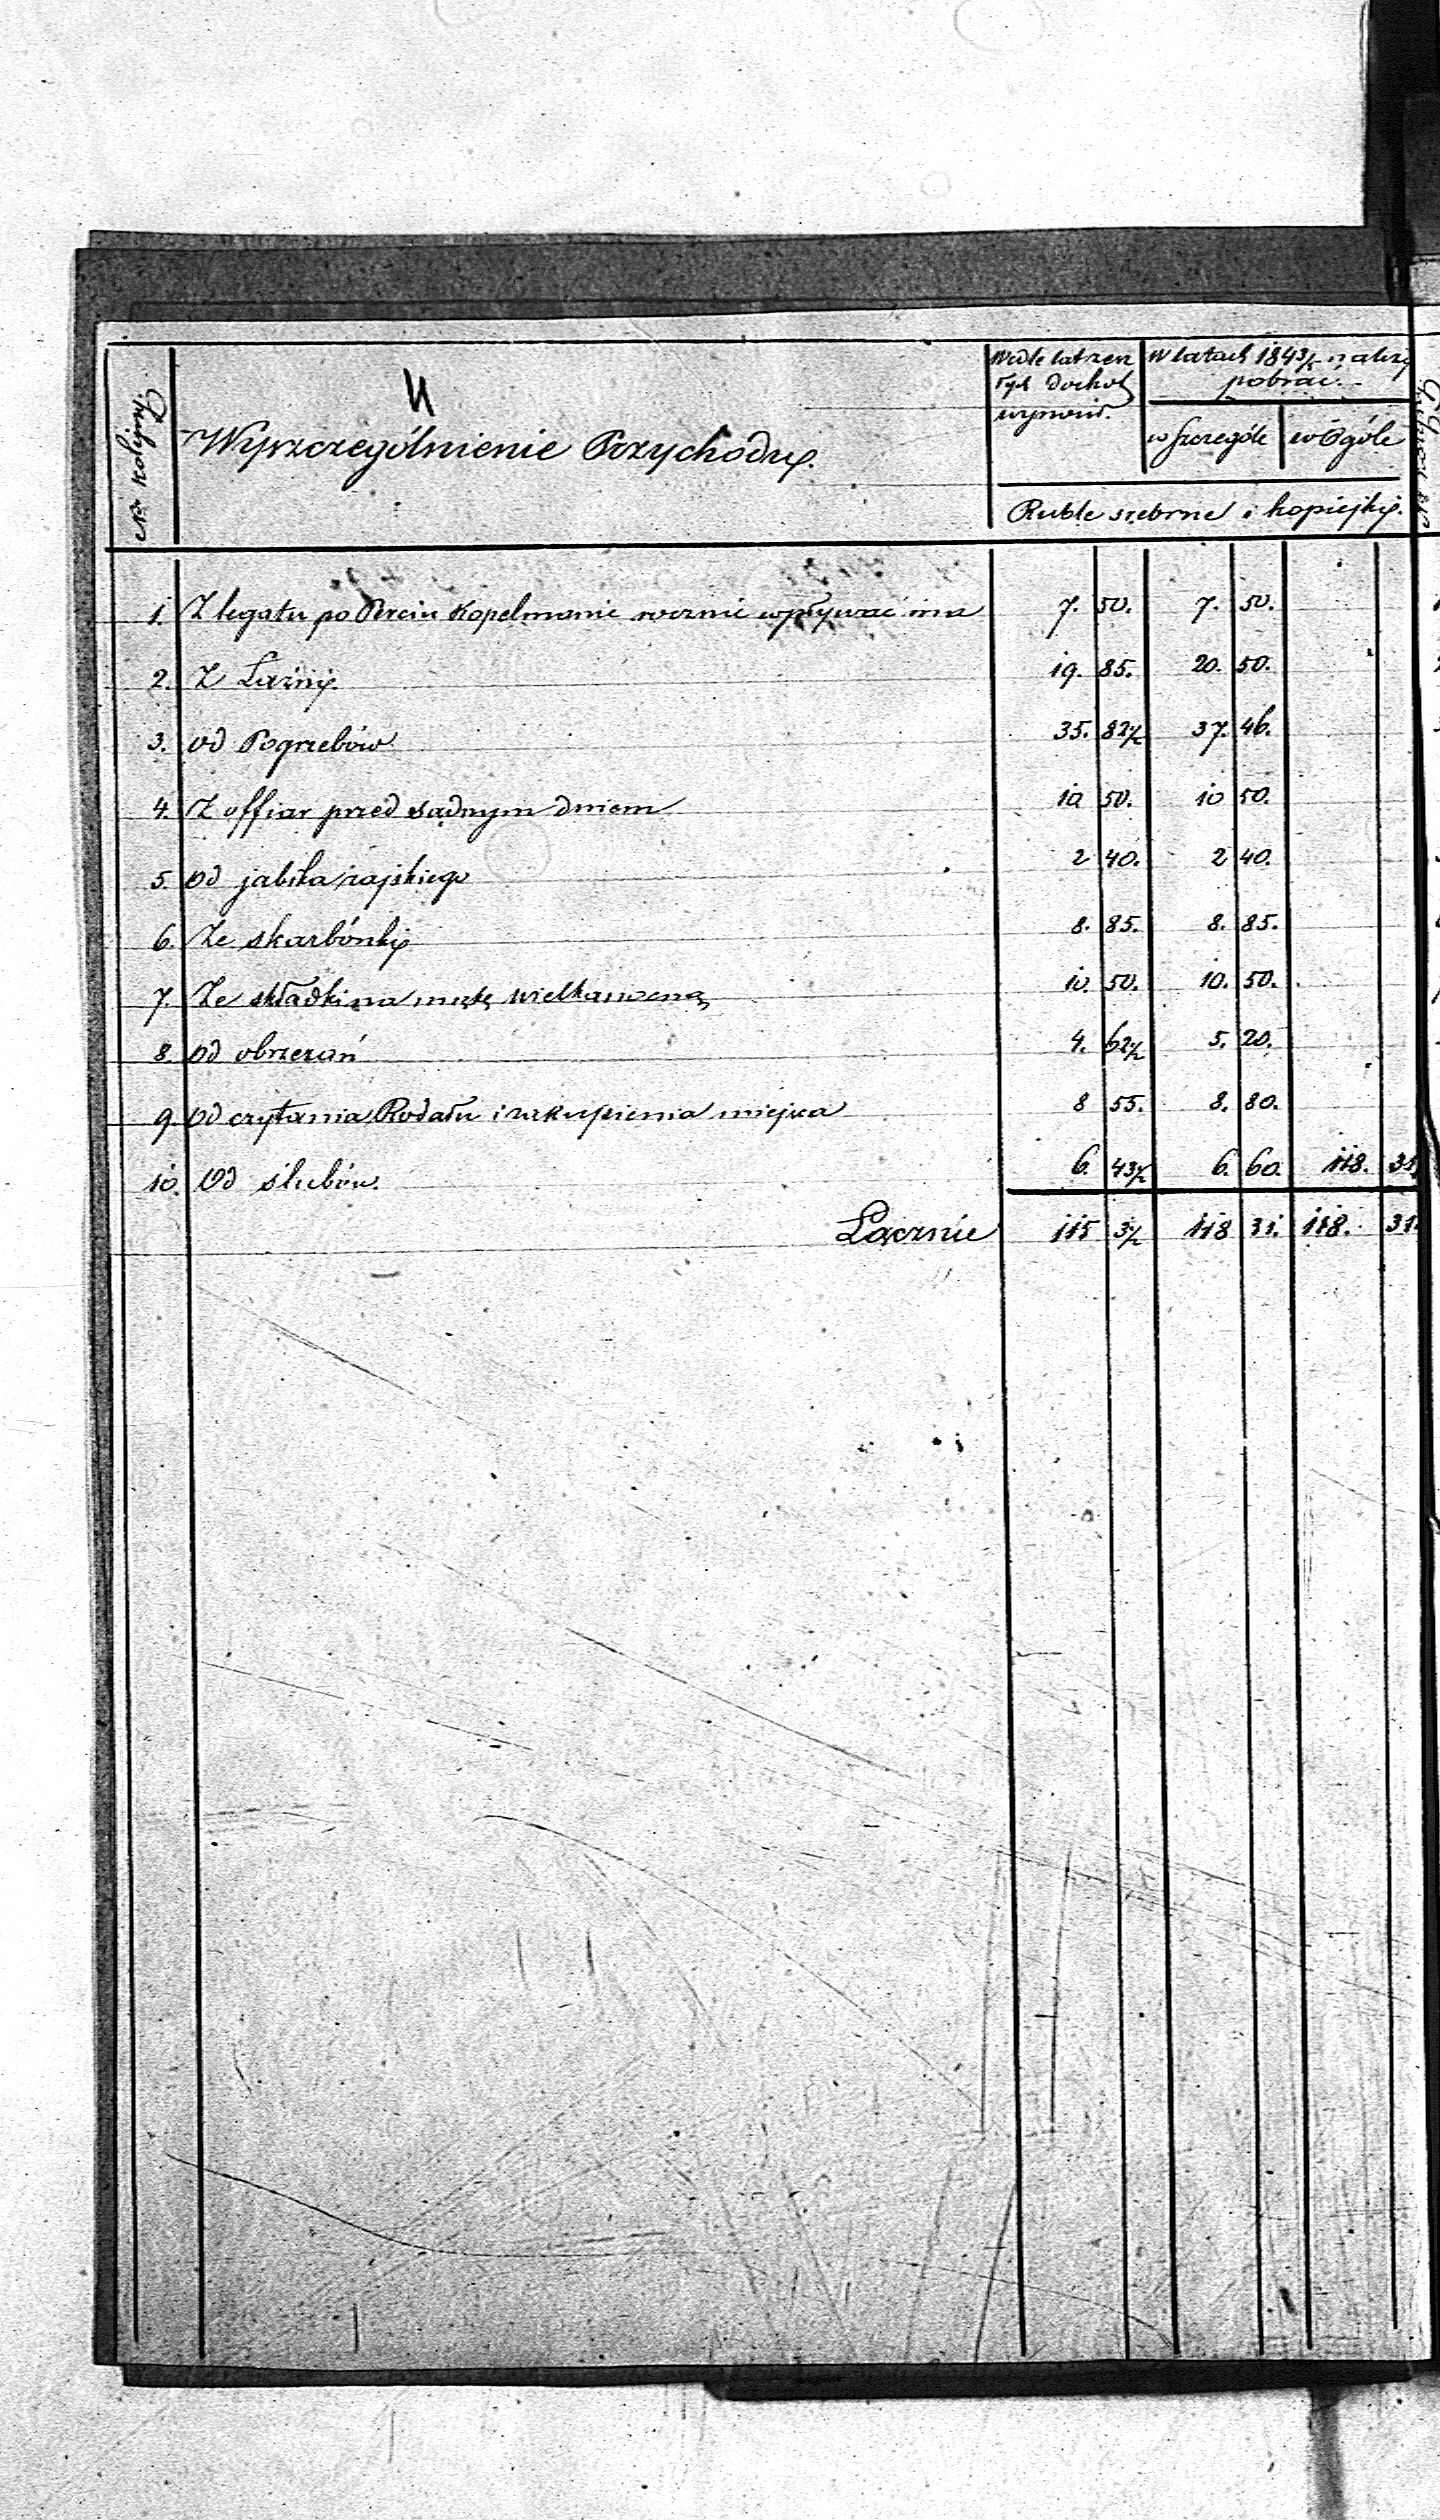 Wyszczególnienie Przychodu.
No kolejny
Wedle lat trzech
tych dochod
wynosił
W latach 1843/5 należy
pobrać.
w szczególe
w Ogóle
Ruble srebrne i kopiejki.
1. Z legatu po Kopelmanie rocznie wpływać ma 7. 50. 7. 50.
2. Z Łaźni. 19. 85. 20. 50.
3. od Pogrzebów 35. 82½ 37. 46.
4. Z offiar przed sądnym dniem 10 50. 10 50.
5. od jabłka rajskiego 2 40. 2 40.
6. Ze skarbónki 8. 85. 8. 85.
7. Ze składki na mąkę wielkanocną 10. 50. 10. 50.
8. od obrzezań 4. 62½ 5. 20.
9. od czytania Rodału i zakupienia miejsca 8 55. 8. 80.
10. Od ślubów. 6. 43½ 6. 60. 118. 31.
Łącznie 115 3½ 118 31. 118. 31.